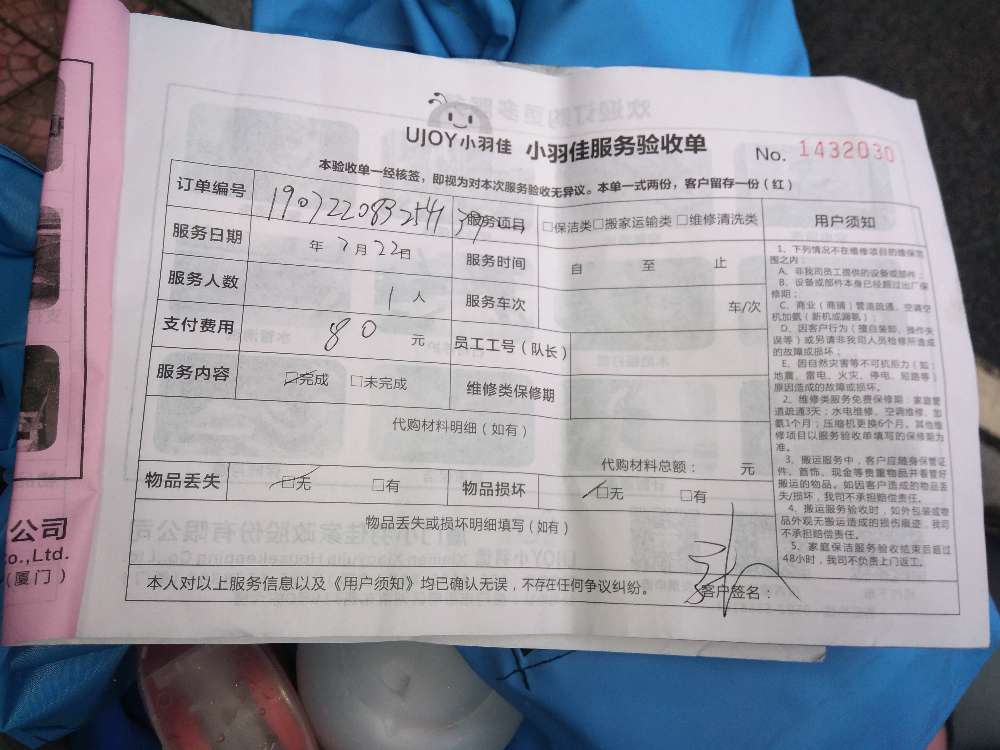 UJOY小羽佳 小羽佳服务验收单
No. 1432030
本验收单一经核签，即视为对本次服务验收无异议。本单一式两份，客户留存一份（红）
订单编号 服务项目 □保洁类□搬家运输类□维修清洗类 用户须知
服务日期 年7月22日 服务时间 自 至 止
服务人数 1人 服务车次 车/次
支付费用 80元 员工工号（队长）
服务内容 □完成 □未完成 维修类保修期
代购材料明细（如有）
代购材料总额： 元
物品丢失 □无 □有 物品损坏 □无 □有
物品丢失或损坏明细填写（如有）
本人对以上服务信息以及《用户须知》均已确认无误，不存在任何争议纠纷。 客户签名：
1、下列情况不在维修项目的维保范
围之内：
A、非我司员工提供的设备或部件；
B、设备或部件本身已经超过出厂保
修期；
C、商业（商铺）管道疏通、空调空
机加氨（新机或漏氨）；
D、因客户行为（擅自装卸、操作失
误等）或另请非我司人员检修所造成
的故障或损坏；
E、因自然灾害等不可抗拒力（如：
地震、雷电、火灾、停电、短路等）
原因造成的故障或损坏。
2、维修类服务免费保修期：家庭管
道疏通3天；水电维修、空调维修、加
氨1个月；压缩机更换6个月。其他维
修项目以服务验收单填写的保修期为
准。
3、搬运服务中，客户应随身保管证
件、首饰、现金等贵重物品并看管好
搬运的物品。如因客户造成的物品丢
失/损坏，我司不承担赔偿责任。
4、搬运服务验收时，如外包装或物
品外观无搬运造成的损伤痕迹，我司
不承担赔偿责任。
5、家庭保洁服务验收结束后超过
48小时，我司不负责上门返工。
公司
Co.,Ltd.
（厦门）